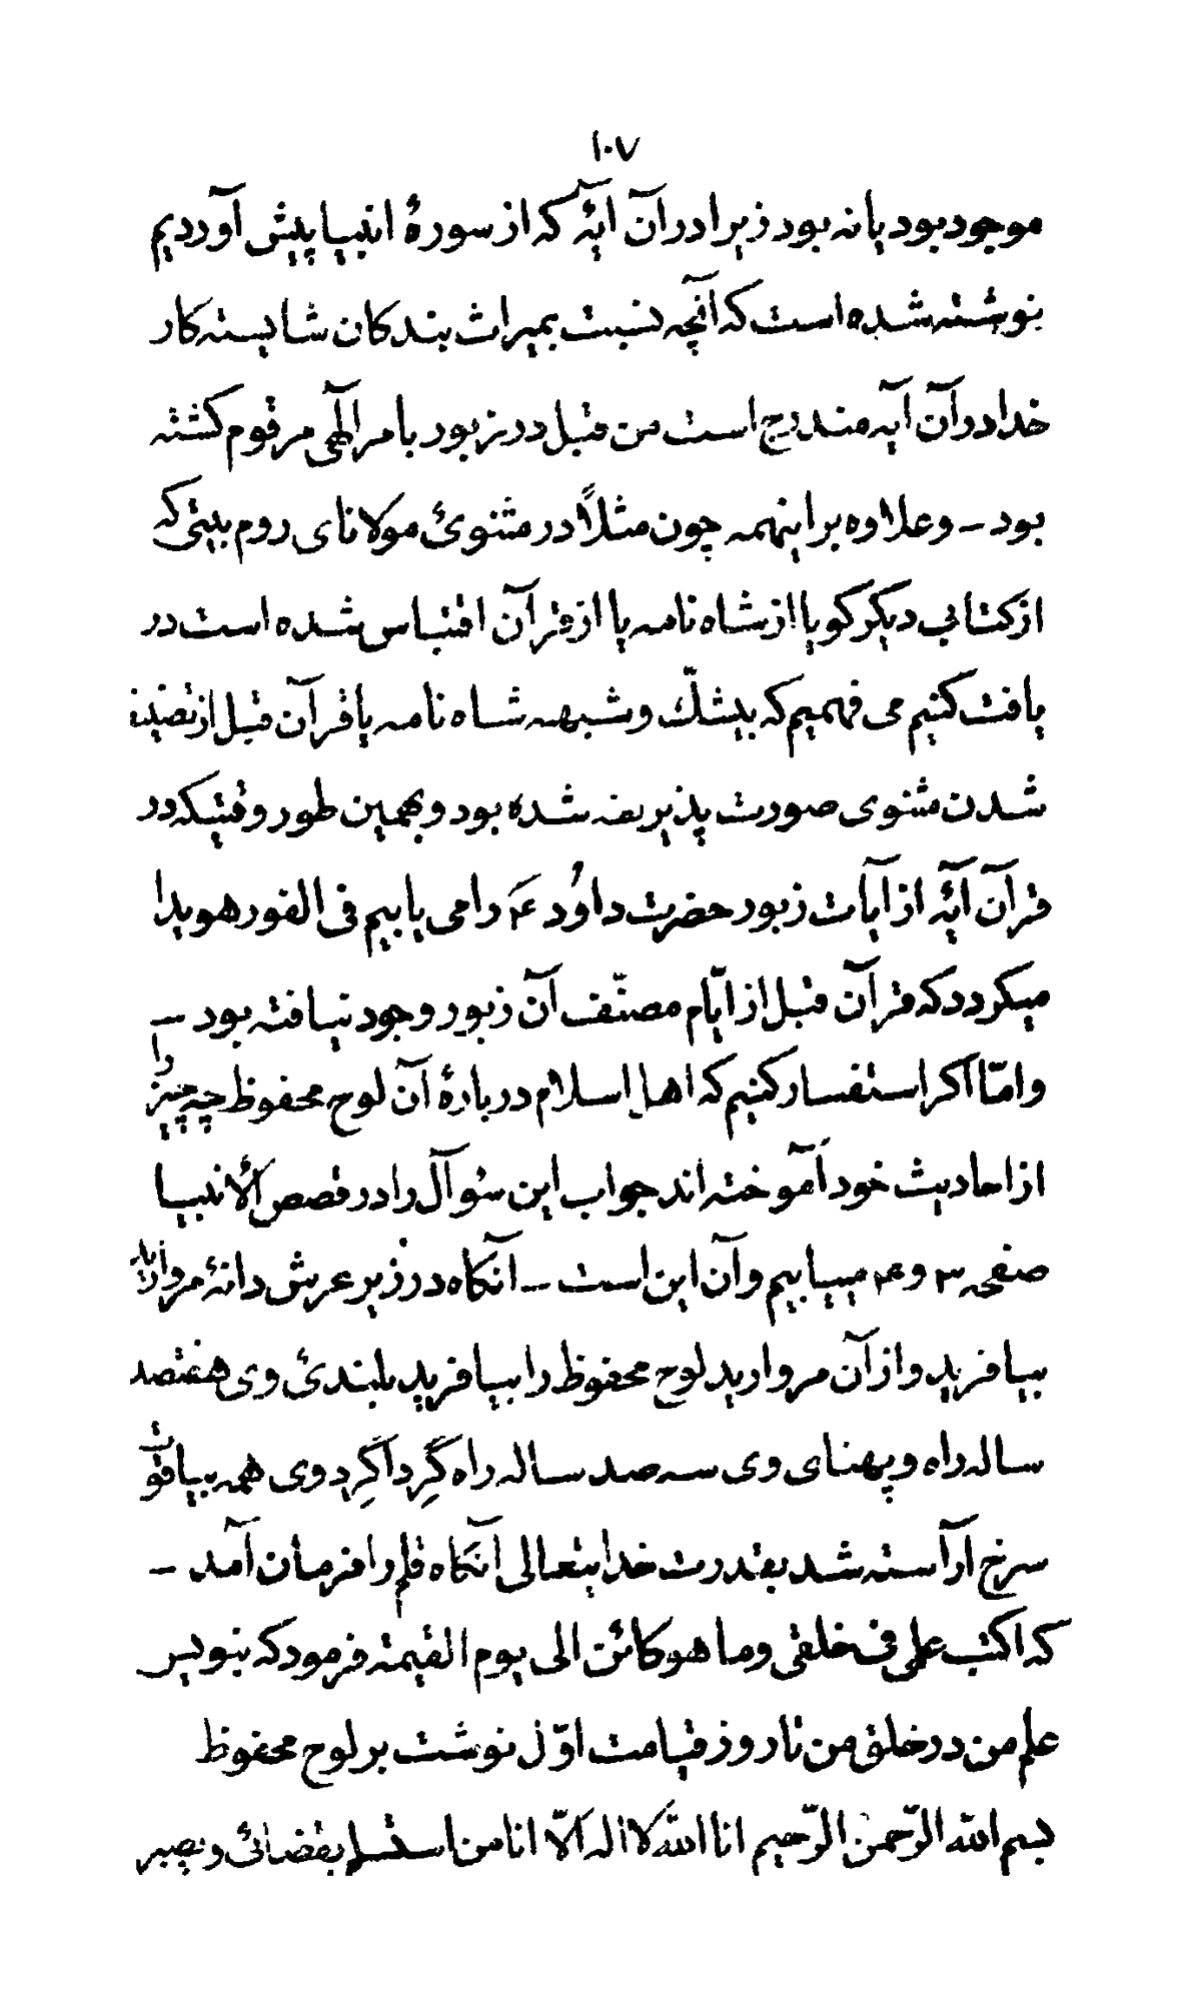 ۱۰۷
موجود بود یا نه بود زیرا در آن آیهٔ که از سورهٔ انبیا پیش آوردیم
نوشته شده است که آنچه نسبت بمیراث بندکان شایسته کار
خدا در آن آیه مندرج است من قبل در زبور بامر الٓهی مرقوم کشته
بود - و علاوه بر اینهمه چون مثلاً در مثنویٔ مولانای روم بیتی که
از کتابی دیکر کویا از شاه نامه یا از قرآن اقتباس شده است در
یافت کنیم می فهمیم که بیشکّ و شبهه شاه نامه یا قرآن قبل از تصنیف
شدن مثنوی صورت پذیرفته شده بود و بهمین طور وقتیکه در
قرآن آیهٔ از آیات زبور حضرت داوُد ع را می یابیم فی الفور هویدا
میکردد که قرآن قبل از ایّام مصنّف آن زبور وجود نیافته بود -
و امّا اکر استفسار کنیم که اهل اسلام دربارهٔ آن لوح محفوظ چه چیز را
از احادیث خود آموخته اند جواب این سُوآل را در قصص الأنبیا
صفحه ۳ و ۴ مییابیم و آن این است - آنکاه در زیر عرش دانهٔ مروارید
بیافرید و از آن مروارید لوح محفوظ را بیافرید بلندیٔ وی هفتصد
ساله راه و پهنای وی سه صد ساله راه گِرداگِرد وی همه بیاقوت
سرخ آراسته شد بقدرت خدایتعالی آنکاه قلم را فرمان آمد -
که اکتب علمی فی خلقی و ما هو کائن الی یوم القیمة فرمود که بنویس
علم من در خلق من تا روز قیامت اوّل نوشت بر لوح محفوظ
بسم الله الرّحمن الرّحیم انا اللّه لا اله الّا انا من استسلم بقضائی و یصبر